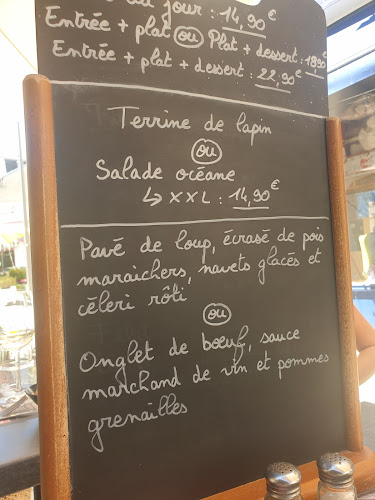 jour : 14,90€
Entrée + plat ou Plat + dessert : 18,90€
Entrée + plat + dessert : 22,90€
Terrine de lapin
ou
Salade océane
↳ XXL : 14,90€
Pavé de loup, écrasé de pois
maraichers, navets glacés et
céleri rôti
ou
Onglet de bœuf, sauce
marchand de vin et pommes
grenailles